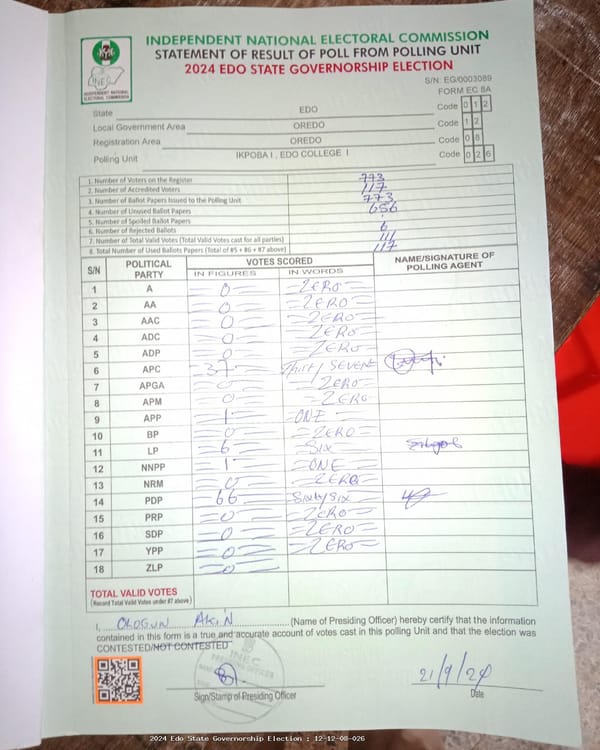 INDEPENDENT NATIONAL ELECTORAL COMMISSION
STATEMENT OF RESULT OF POLL FROM POLLING UNIT
2024 EDO STATE GOVERNORSHIP ELECTION
INEC
INDEPENDENT NATIONAL ELECTORAL COMMISSION
S/N: EG/0003089
FORM EC 8A
State EDO Code 0 1 2
Local Government Area OREDO Code 1 2
Registration Area OREDO Code 0 8
Polling Unit IKPOBA I , EDO COLLEGE I Code 0 2 6
1. Number of Voters on the Register 773
2. Number of Accredited Voters 117
3. Number of Ballot Papers Issued to the Polling Unit 773
4. Number of Unused Ballot Papers 656
5. Number of Spoiled Ballot Papers
6. Number of Rejected Ballots 6
7. Number of Total Valid Votes (Total Valid Votes cast for all parties) 111
8. Total Number of Used Ballots Papers (Total of #5 + #6 + #7 above) 117
S/N POLITICAL PARTY VOTES SCORED NAME/SIGNATURE OF POLLING AGENT
IN FIGURES IN WORDS
1 A 0 ZERO
2 AA 0 ZERO
3 AAC 0 ZERO
4 ADC 0 ZERO
5 ADP 0 ZERO
6 APC 37 Thirty SEVEN
7 APGA 0 ZERO
8 APM 0 ZERO
9 APP 1 ONE
10 BP 0 ZERO
11 LP 6 SIX
12 NNPP 1 ONE
13 NRM 0 ZERO
14 PDP 66 Sixty SIX
15 PRP 0 ZERO
16 SDP 0 ZERO
17 YPP 0 ZERO
18 ZLP 0
TOTAL VALID VOTES
(Record Total Valid Votes under #7 above)
I, OLOGUN AKIN (Name of Presiding Officer) hereby certify that the information
contained in this form is a true and accurate account of votes cast in this polling Unit and that the election was
CONTESTED/NOT CONTESTED
INEC
PRESIDING OFFICER
21/9/24
Sign/Stamp of Presiding Officer Date
2024 Edo State Governorship Election : 12-12-08-026